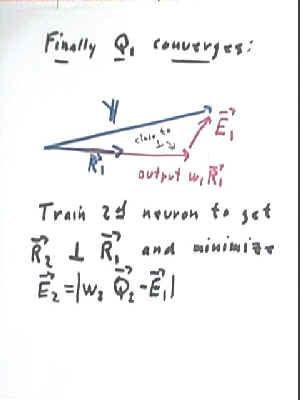 Finally Q₁ converges:
Y
close to ⊥
E⃗₁
R⃗₁
output w₁ R⃗₁
Train 2d neuron to get
R⃗₂ ⊥ R⃗₁ and minimize
E⃗₂ = |w₂ Q⃗₂ - E⃗₁|